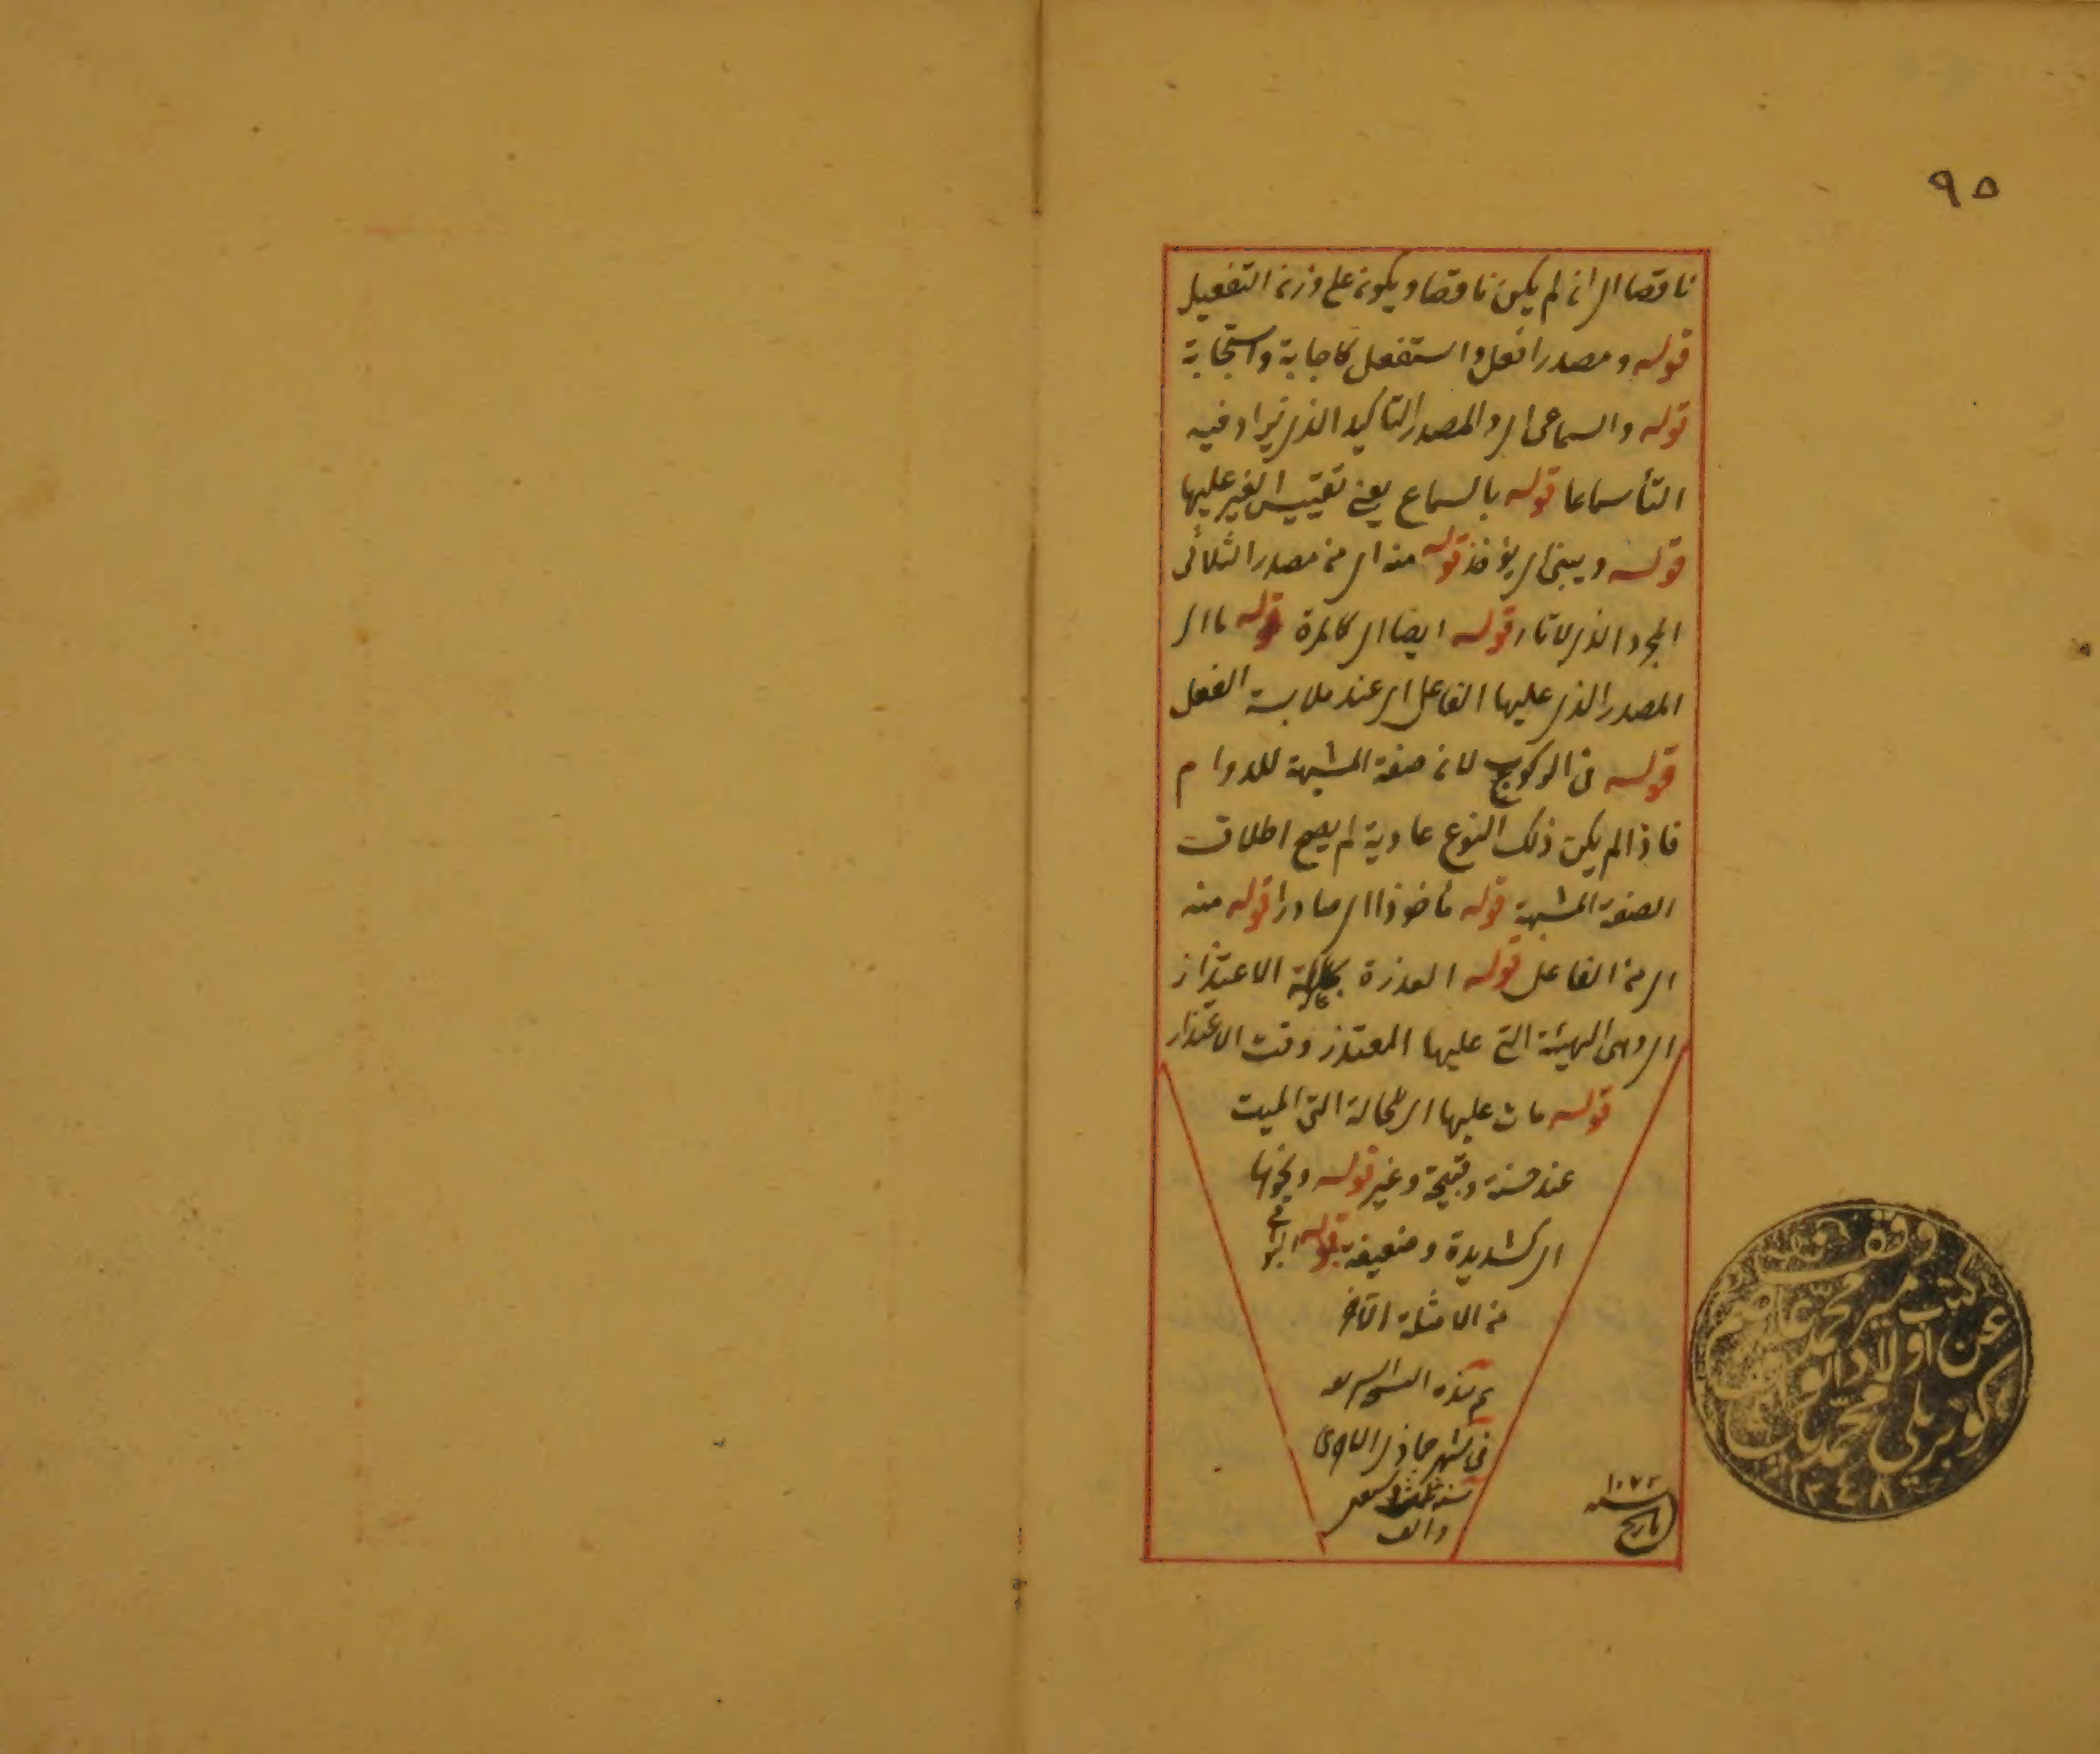 ٩٥
ناقصا اى ان لم يكن ناقصا ويكون على وزن التفعيل
قوله ومصدر افعل واستفعل كاجابة واستجابة
قوله والسماعى اى والمصدر التاكيد الذى يزاد فيه
التأ سماعا قوله بالسماع يعنى تقييس الغير عليها
قوله ويبنى اى يؤخذ قوله منه اى من مصدر الثلاثى
المجرد الذى لا تاء قوله ايضا اى كالمرة قوله ما اى
المصدر الذى عليها الفاعل اى عند ملابسة الفعل
قوله فى الركوب لان صفة المشبهة للدوام
فاذا لم يكن ذلك النوع عادية لم يصح اطلاق
الصفة المشبهة قوله مأخوذا اى صادرا قوله منه
اى من الفاعل قوله العذرة الاعتذار
اى وهى الهيئة التى عليها المعتذر وقت الاعتذار
قوله مات عليها اى الحالة التى الميت
عند حسنة وقبيحة وغير قوله ونحوها
اى شديدة وضعيفة قوله البواقى
من الامثلة الآخر
تم هذه
فى شهر جماذى الاولى
سنة
والف
١٠٧٣
سنه
تاريخ
وقف
كتب مير محمد عاصم
عن اولاد ابو
كوپريلى محمد پاشا
١٢٤٨